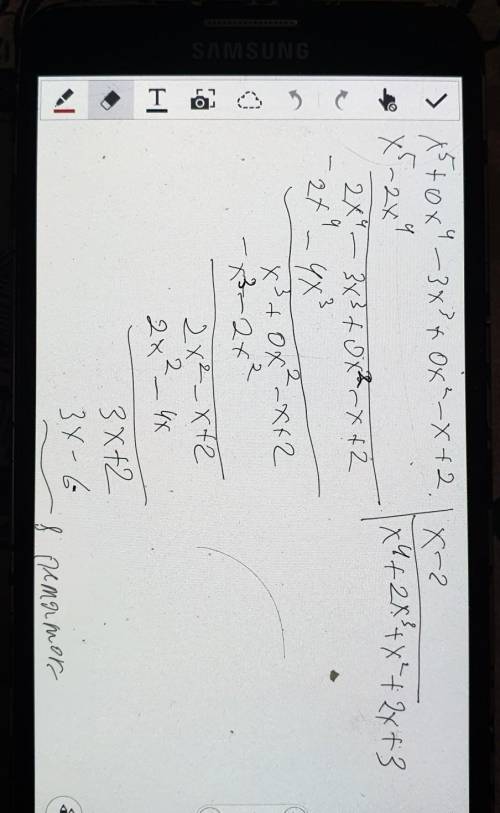 SAMSUNG
T
x⁵ + 0x⁴ - 3x³ + 0x² - x + 2 | x - 2
x⁵ - 2x⁴
x⁴ + 2x³ + x² + 2x + 3
2x⁴ - 3x³ + 0x² - x + 2
- 2x⁴ - 4x³
x³ + 0x² - x + 2
- x³ - 2x²
2x² - x + 2
2x² - 4x
3x + 2
3x - 6
8